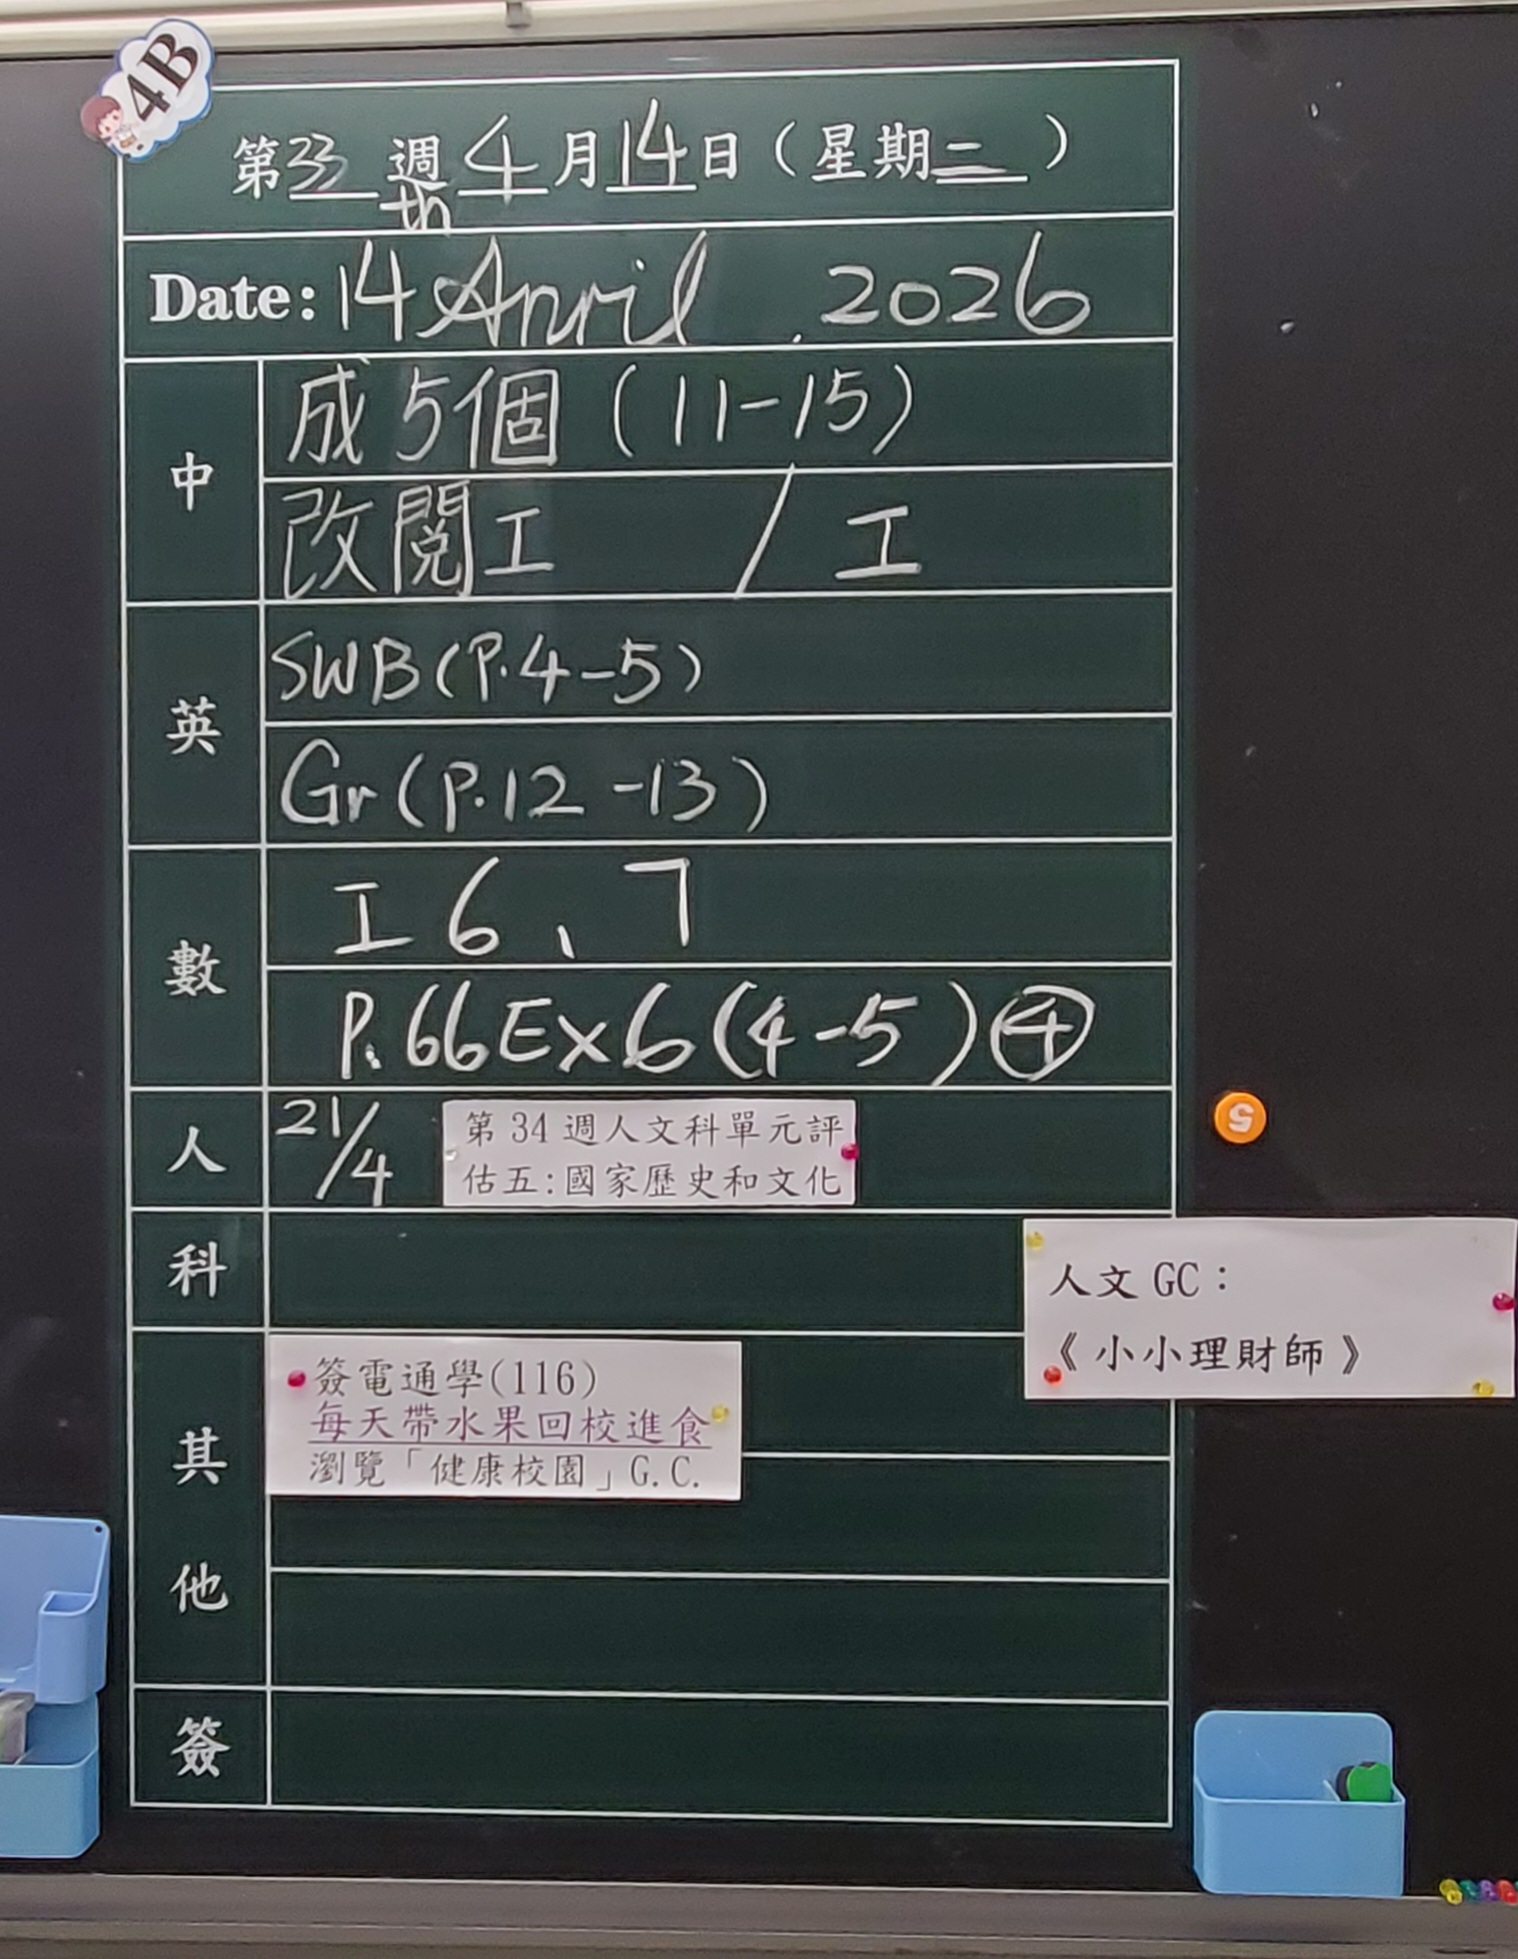 4B
第33週4月14日（星期二）
th
Date: 14 April .2026
中
成5個（11-15）
改閱工 / 工
英
SWB(P.4-5)
Gr(P.12-13)
數
工6、7
P.66Ex6(4-5)④
人
21/4
第34週人文科單元評
估五:國家歷史和文化
科
人文GC：
《小小理財師》
其他
簽電通學(116)
每天帶水果回校進食
瀏覽「健康校園」G.C.
簽
5